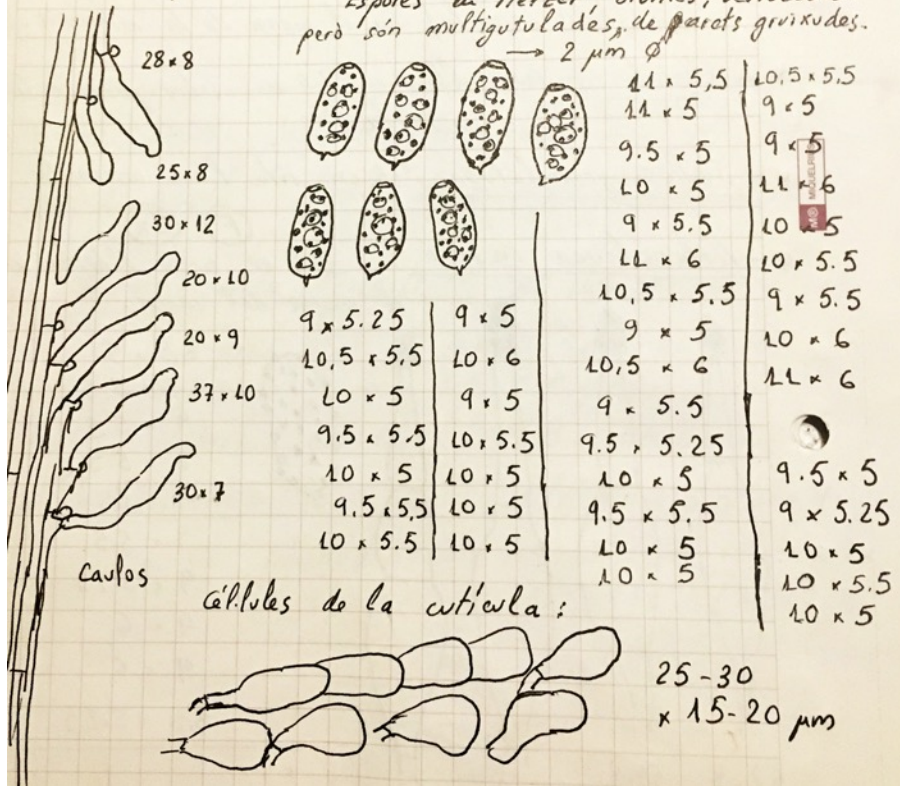 però són multigutulades, de parets gruixudes.
→ 2 µm Ø
28 × 8
25 × 8
30 × 12
20 × 10
20 × 9
37 × 10
30 × 7
Caulos
9 × 5.25
10,5 × 5,5
10 × 5
9,5 × 5,5
10 × 5
9,5 × 5,5
10 × 5.5
9 × 5
10 × 6
9 × 5
10 × 5.5
10 × 5
10 × 5
10 × 5
11 × 5,5
11 × 5
9.5 × 5
10 × 5
9 × 5.5
11 × 6
10,5 × 5.5
9 × 5
10,5 × 6
9 × 5.5
9.5 × 5.25
10 × 5
9.5 × 5.5
10 × 5
10 × 5
10,5 × 5.5
9 × 5
9 × 5
11 × 6
10 × 5
10 × 5.5
9 × 5.5
10 × 6
11 × 6
9.5 × 5
9 × 5.25
10 × 5
10 × 5.5
10 × 5
Cél.lules de la cutícula :
25 - 30
× 15 - 20 µm